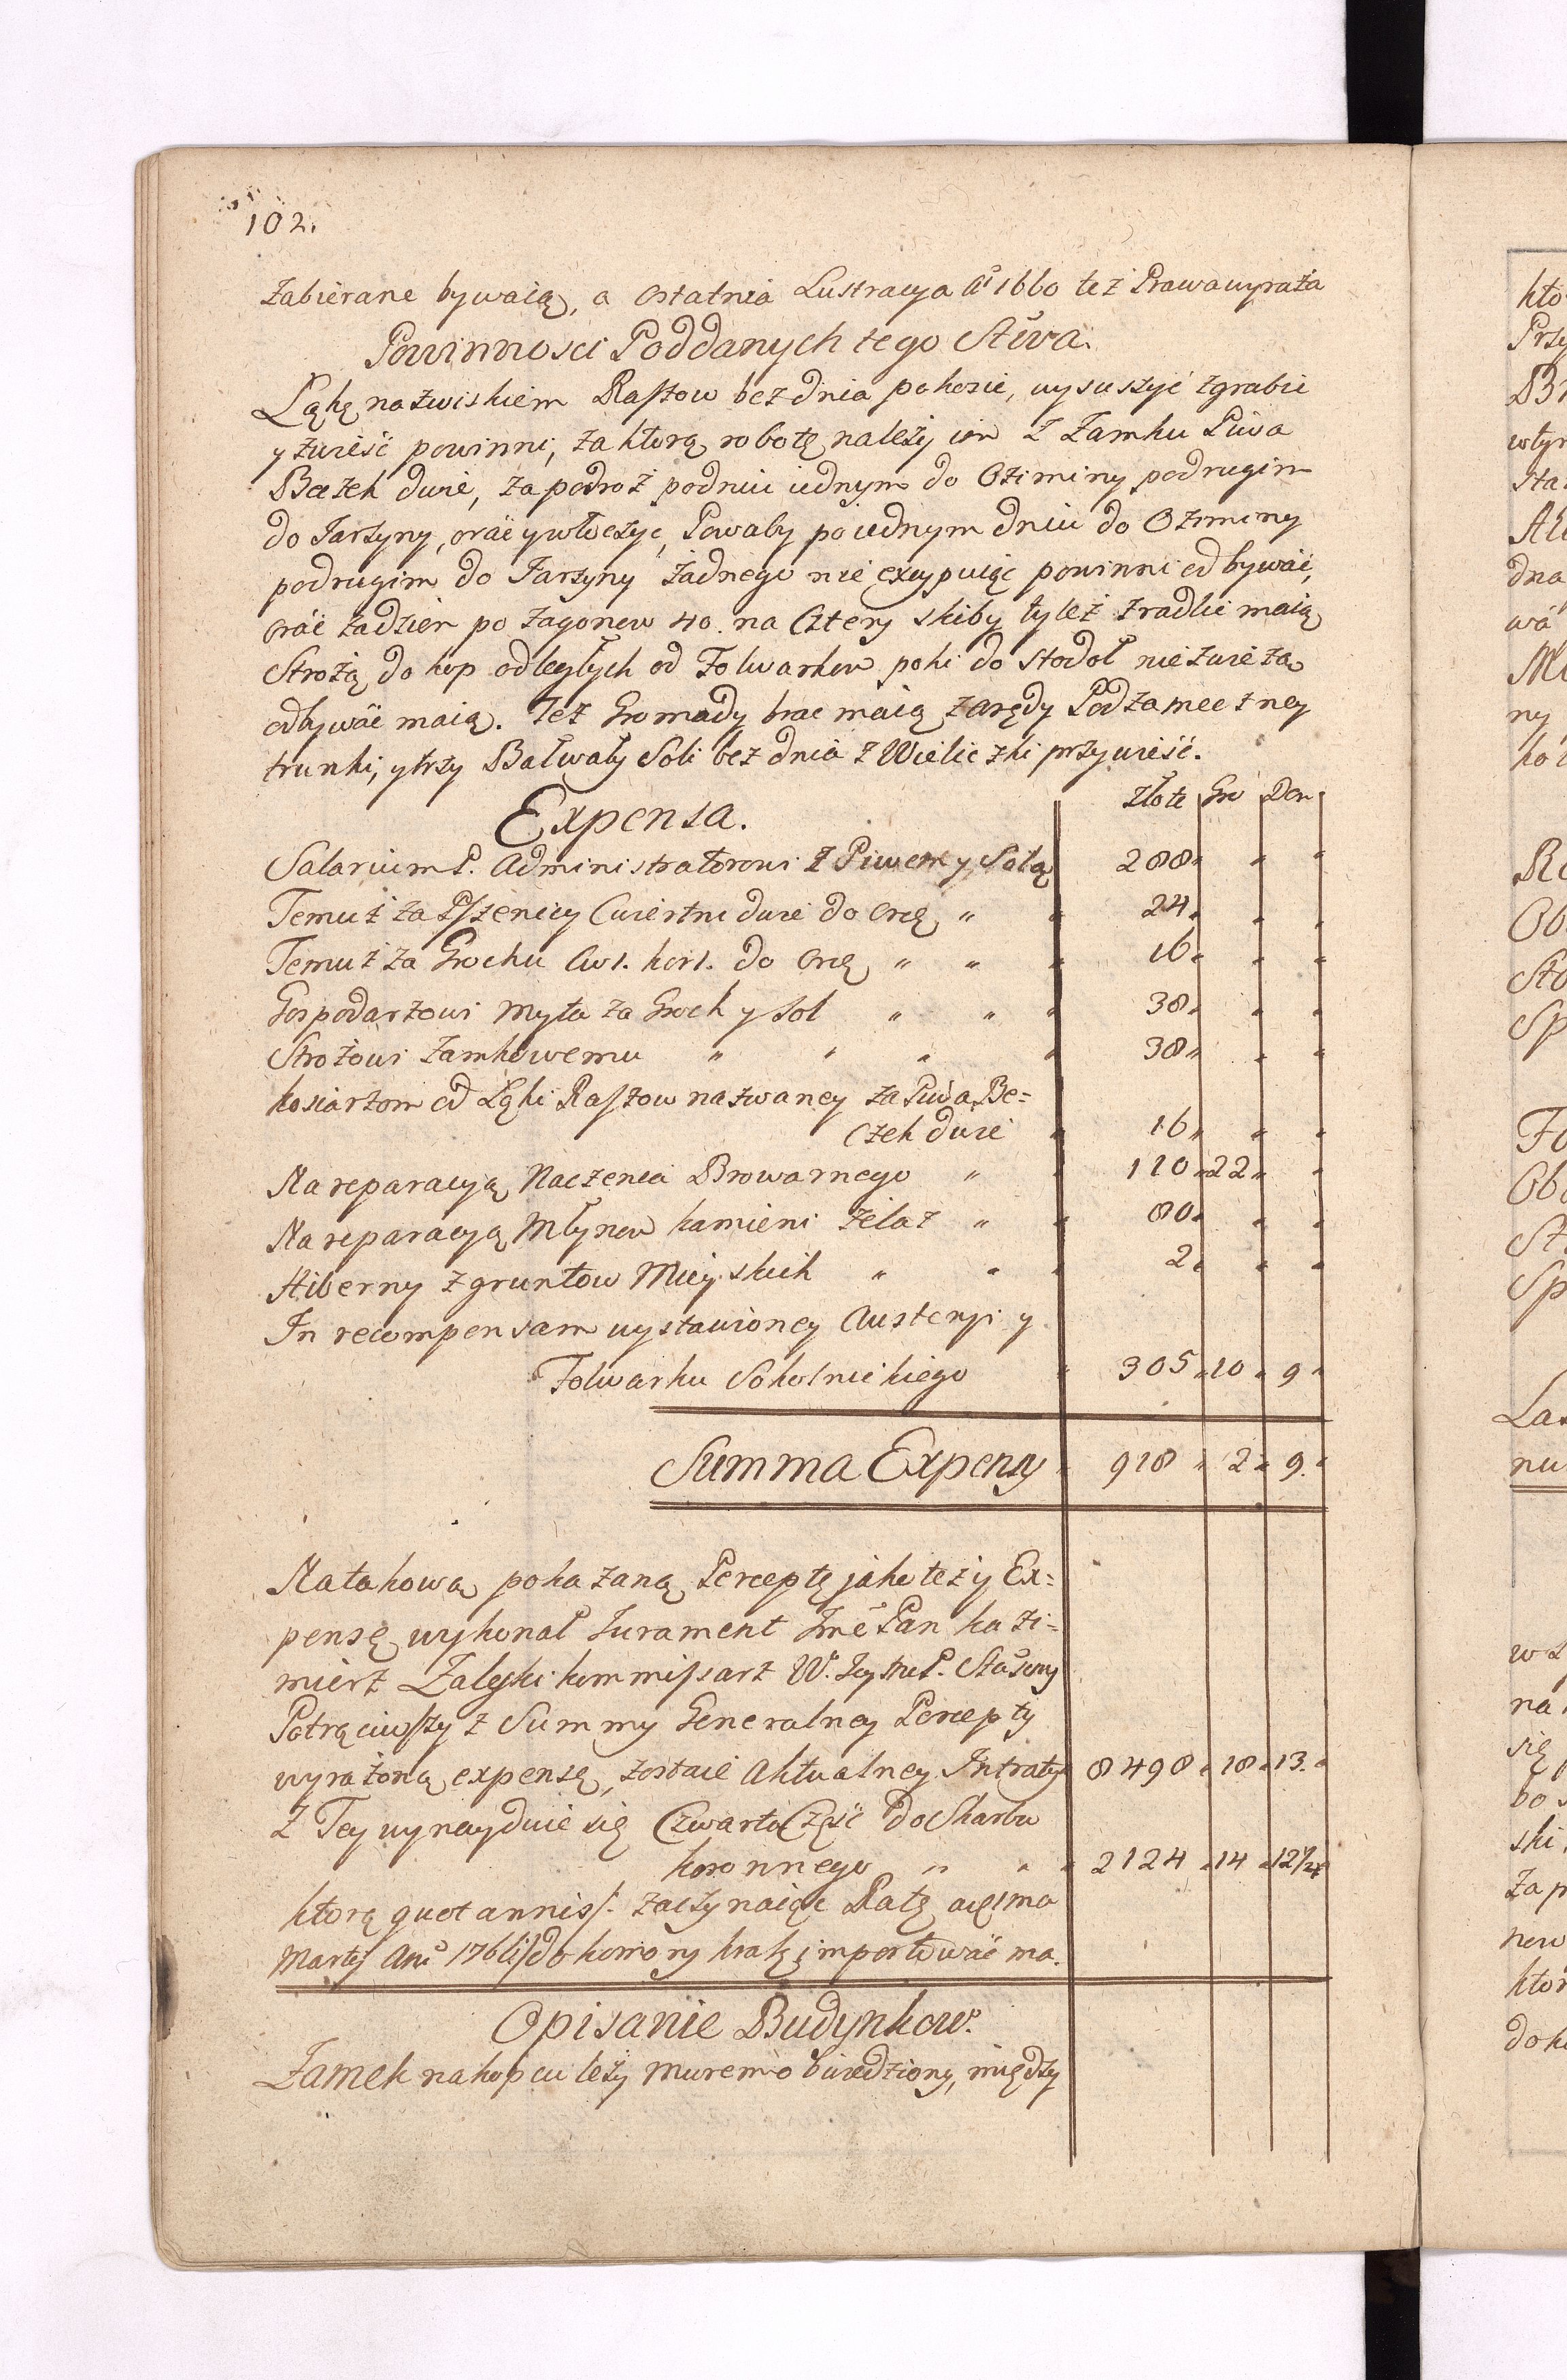 102.
zabierane bywaią, a ostatnia Lustracya Aº 1660 też Prawa wyraża
Powinnosci Poddanych tego Stwa.
Łąkę nazwiskiem Raszow bez dnia pokosić, wysuszyć zgrabić
y zwieść powinni, za ktorą robotę należy im z Zamku Piwa
Beczek dwie, za podroż podniu iednym do Oziminy podrugim
do Jarzyny, orać y włoczyć, Powaby po iednym dniu do Oziminy
podrugim do Jarzyny żadnego nie excypuiąc powinni odbywać,
orać zadzien po zagonow 40. na Cztery skiby tyleż zradlić maią
Strożą do kop odległych od Folwarkow poki do stodoł nie zwiezą
odbywać maią. Też Gromady brać maią z arędy Podzameczney
trunki, y trzy Bałwały Soli bez dnia z Wieliczki przywieść.
Expensa. Złote Gro Den
Salarium P. Administratorowi z Piwem y Solą 288 " "
Temuż za Pszenicy Cwiertni dwie do Orę " " 24 " "
Temuż za Grochu Cwi. kor1. do Orę " " " 16 " "
Gospodarzowi Myta za Groch y Sol " " " 38 " "
Strożowi Zamkowemu " " " " 38 " "
kosiarzom od Łąki Raszow nazwaney za Piwa Be=
czek dwie " 16 " "
Na reparacyą Naczenia Browarnego " " 110 22 "
Na reparacyą Młynow kamieni żelaz " " 80 " "
Hiberny z gruntow Mieyskich " " " 2 " "
In recompensam wystawioney Austeryi y
Folwarku Sokolnickiego " 305 10 9
Summa Expensy 918 2 9.
Na takową pokazaną Perceptę jako też y Ex=
pensę wykonał Jurament Jmć Pan kazi=
mierz Zaleski kommissarz
Potrąciwszy z Summy Generalney Percepty
wyrażoną expensę, zostaie Aktualney Intraty 8498 18 13.
Z Tey wynayduie się Czwarta Część do Skarbu
koronnego " " " 2124 14 12
ktorą quot annis zaczynaiąc Ratę
Martij do komory importować ma.
Opisanie Budynkow.
Zamek na kopcu leży murem obwiedziony, między